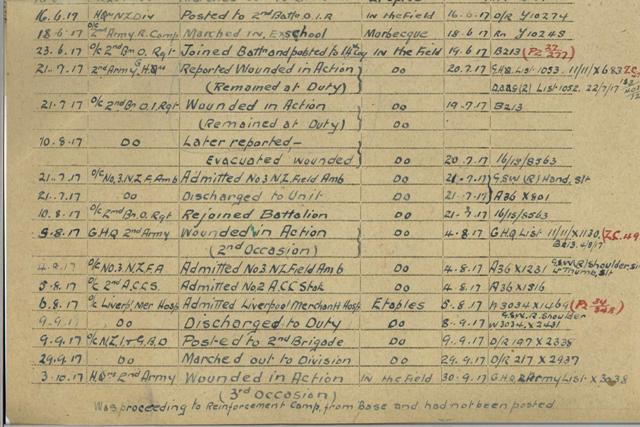 16.6.17 HQrs N.Z.Div Posted to 2nd Battn O.I.R In the Field 16.6.17 D/R Y10274
18.6.17 O/C 2nd Army R. Camp Marched in, Ex School Morbecque 18.6.17 Rn Y10248
23.6.17 O/C 2nd Bn O. Rgt Joined Battn and posted to 14th Coy In the Field 19.6.17 B213
21.7.17 2nd Army Reported Wounded in Action Do 20.7.17 G.H.Q. List 1053. 11/11/X683
(Remained at Duty) List 1052. 22/7/17
21.7.17 O/C 2nd Bn O.I. Rgt Wounded in Action Do 19.7.17 B213
(Remained at Duty) Do
10.8.17 Do Later reported,– Do
Evacuated wounded Do 20.7.17 16/15/8563
21.7.17 O/C No.3.N.Z.F.Amb Admitted No3 N.Z.Field Amb Do 21.7.17 GSW (R) Hand, Slt
21.7.17 Do Discharged to Unit Do 21.7.17 A36 X801
10.8.17 O/C 2nd Bn O. Rgt Rejoined Battalion Do 21.7.17 16/15/8563
5.8.17 G.H.Q 2nd Army Wounded in Action Do 4.8.17 G.H.Q List 11/11/X1130,
(2nd Occasion) B213. 4/8/17
4.9.17 O/C No.3.N.Z.F.A Admitted No3 N.Z.Field Amb Do 4.8.17 A36 X1231 GSW(R) Shoulder,
Thumb, Slt
5.8.17 O/C 2nd A.C.C.S. Admitted No2 A.C.C. Stn Do 4.8.17 A36 X1516
6.8.17 O/C Liverpl, Mer Hosp Admitted Liverpool Merchant Hosp Etaples 5.8.17 W3034 X1469
G.S.W. R. Shoulder
9.9.17 Do Discharged to Duty Do 8.9.17 W3034 X2431
9.9.17 O/C N.Z.I.&G.B.D Posted to 2nd Brigade Do 9.9.17 D/R 197 X2338
29.9.17 Do Marched out to Division Do 29.9.17 D/R 217 X2937
3.10.17 HQrs 2nd Army Wounded in Action In the Field 30.9.17 G.H.Q 2 Army List X3038
(3rd Occasion)
Was proceeding to Reinforcement Camp, from Base and had not been posted